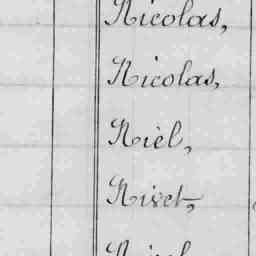 Nicolas,
Nicolas,
Nièl,
Nivet,